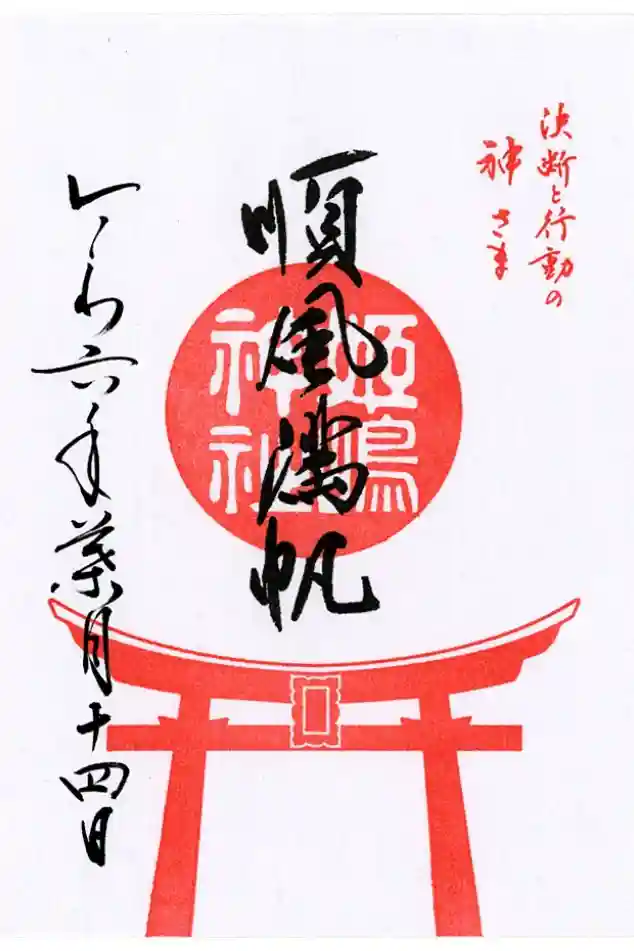 決断と行動の
神さま
順風満帆
姫嶋
神社
令和六年葉月十四日